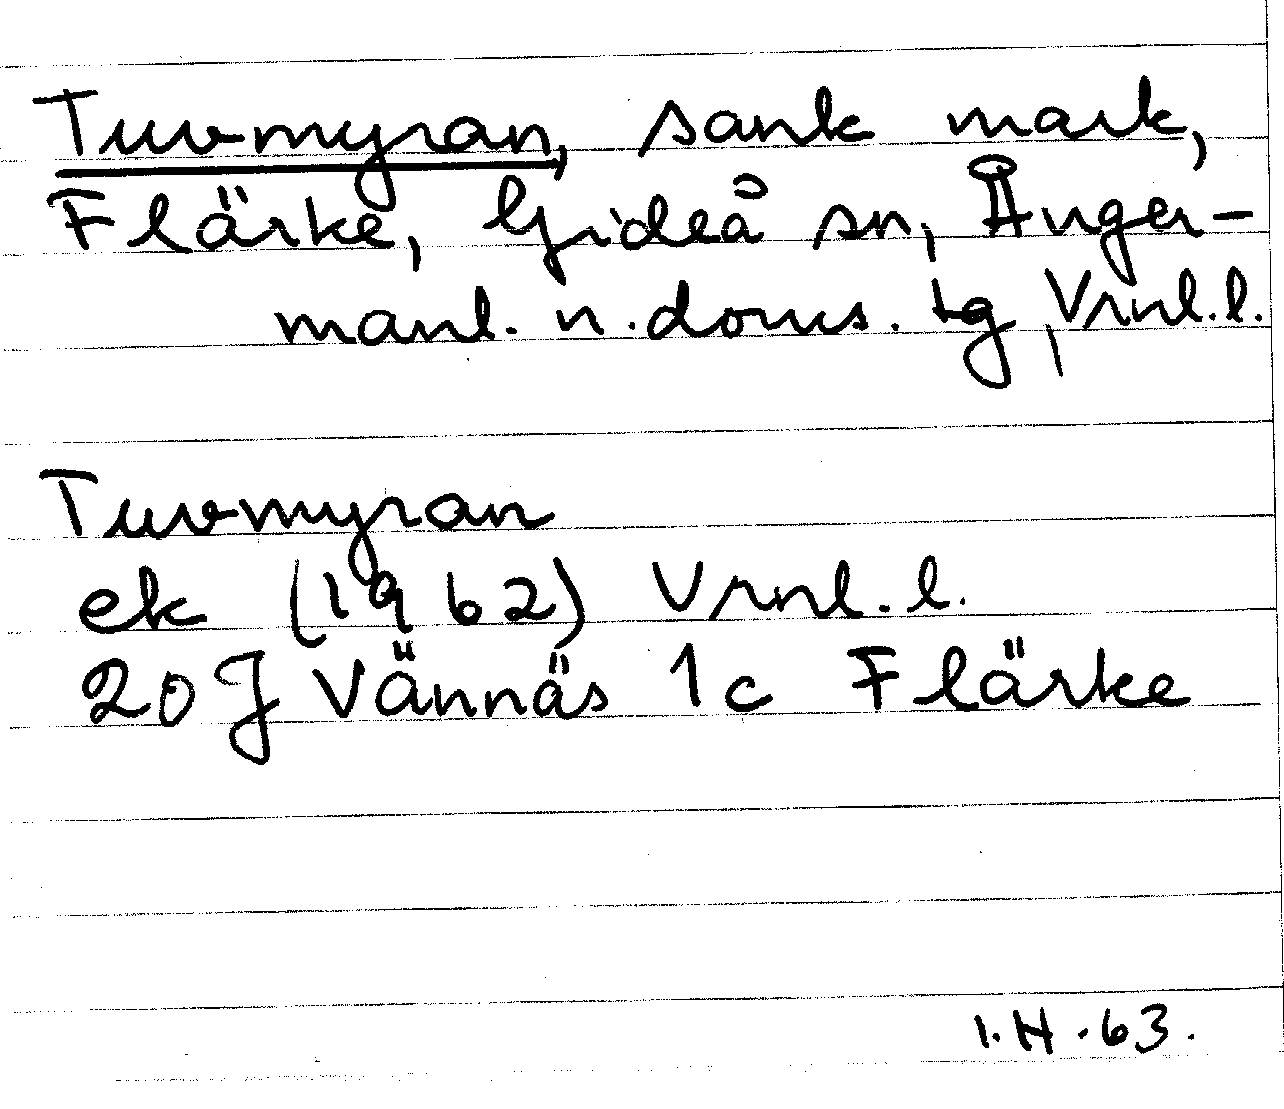 Tuvmyran, sank mark,
Flärke, Gideå sn, Ånger-
manl. n. doms. tg, Vrnl.l.
Tuvmyran
ek (1962) Vrnl.l.
20J Vännäs 1c Flärke
I.H.63.